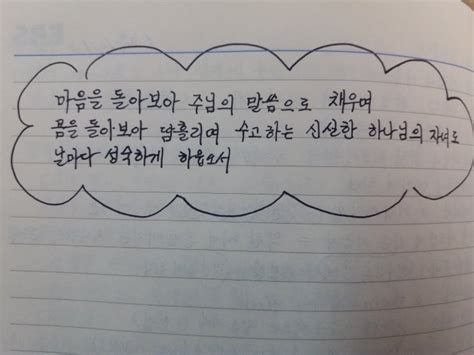 마음을 돌아보아 주님의 말씀으로 채우며
몸을 돌아보아 땀흘리며 수고하는 신실한 하나님의 자녀로
날마다 성숙하게 하옵소서